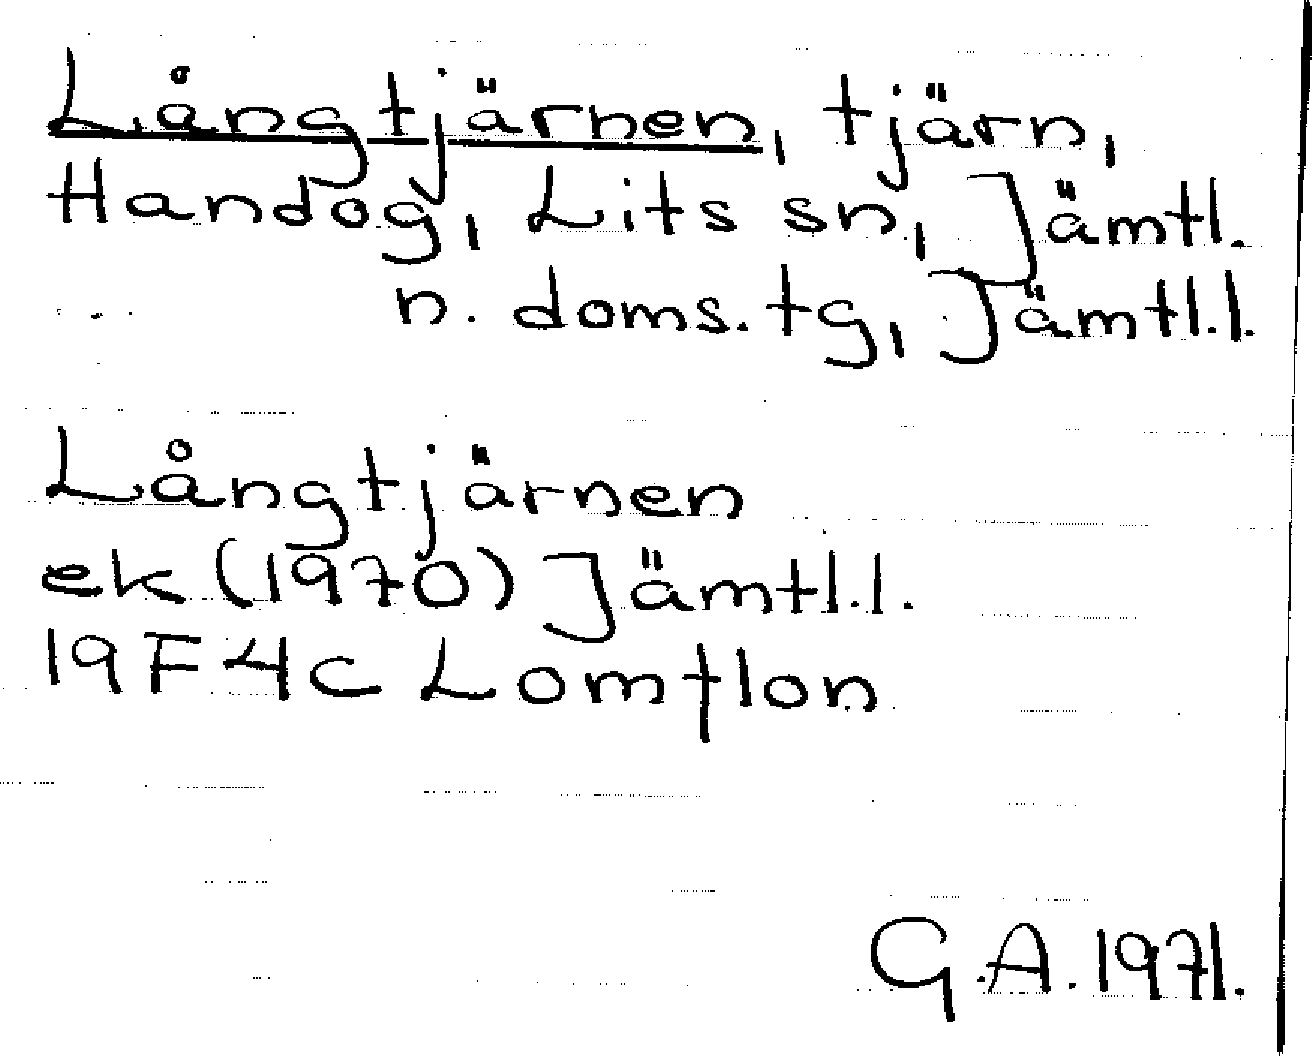 Långtjärnen, tjärn,
Handog, Lits sn, Jämtl.
n. doms. tg, Jämtl.l.
Långtjärnen
ek (1970) Jämtl.l.
19F4c Lomtlon
G.A. 1971.